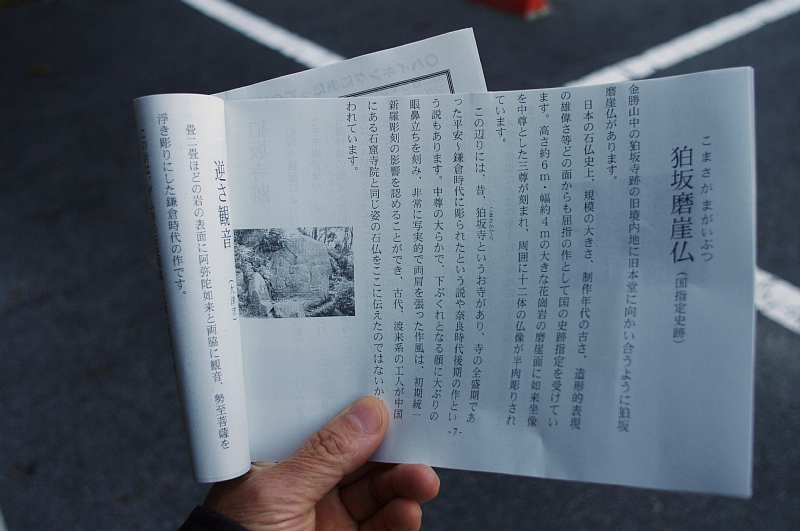 こまさかまがいぶつ
狛坂磨崖仏（国指定史跡）
金勝山中の狛坂寺跡の旧境内地に旧本堂に向かい合うように狛坂
磨崖仏があります。
日本の石仏史上、規模の大きさ、制作年代の古さ、造形的表現
の雄偉さ等どの面からも屈指の作として国の史跡指定を受けてい
ます。高さ約６ｍ・幅約４ｍの大きな花崗岩の磨崖面に如来坐像
を中尊とした三尊が刻まれ、周囲に十二体の仏像が半肉彫りされ
ています。
この辺りには、昔、狛坂寺というお寺があり、寺の全盛期であ
った平安～鎌倉時代に彫られたという説や奈良時代後期の作とい
う説もあります。中尊の大らかで、下ぶくれとなる顔に大ぶりの
眼鼻立ちを刻み、非常に写実的で両肩を張った作風は、初期統一
新羅彫刻の影響を認めることができ、古代、渡来系の工人が中国
にある石窟寺院と同じ姿の石仏をここに伝えたのではないか
われています。
-7-
逆さ観音
畳二畳ほどの岩の表面に阿弥陀如来と両脇に観音、勢至菩薩を
浮き彫りにした鎌倉時代の作です。